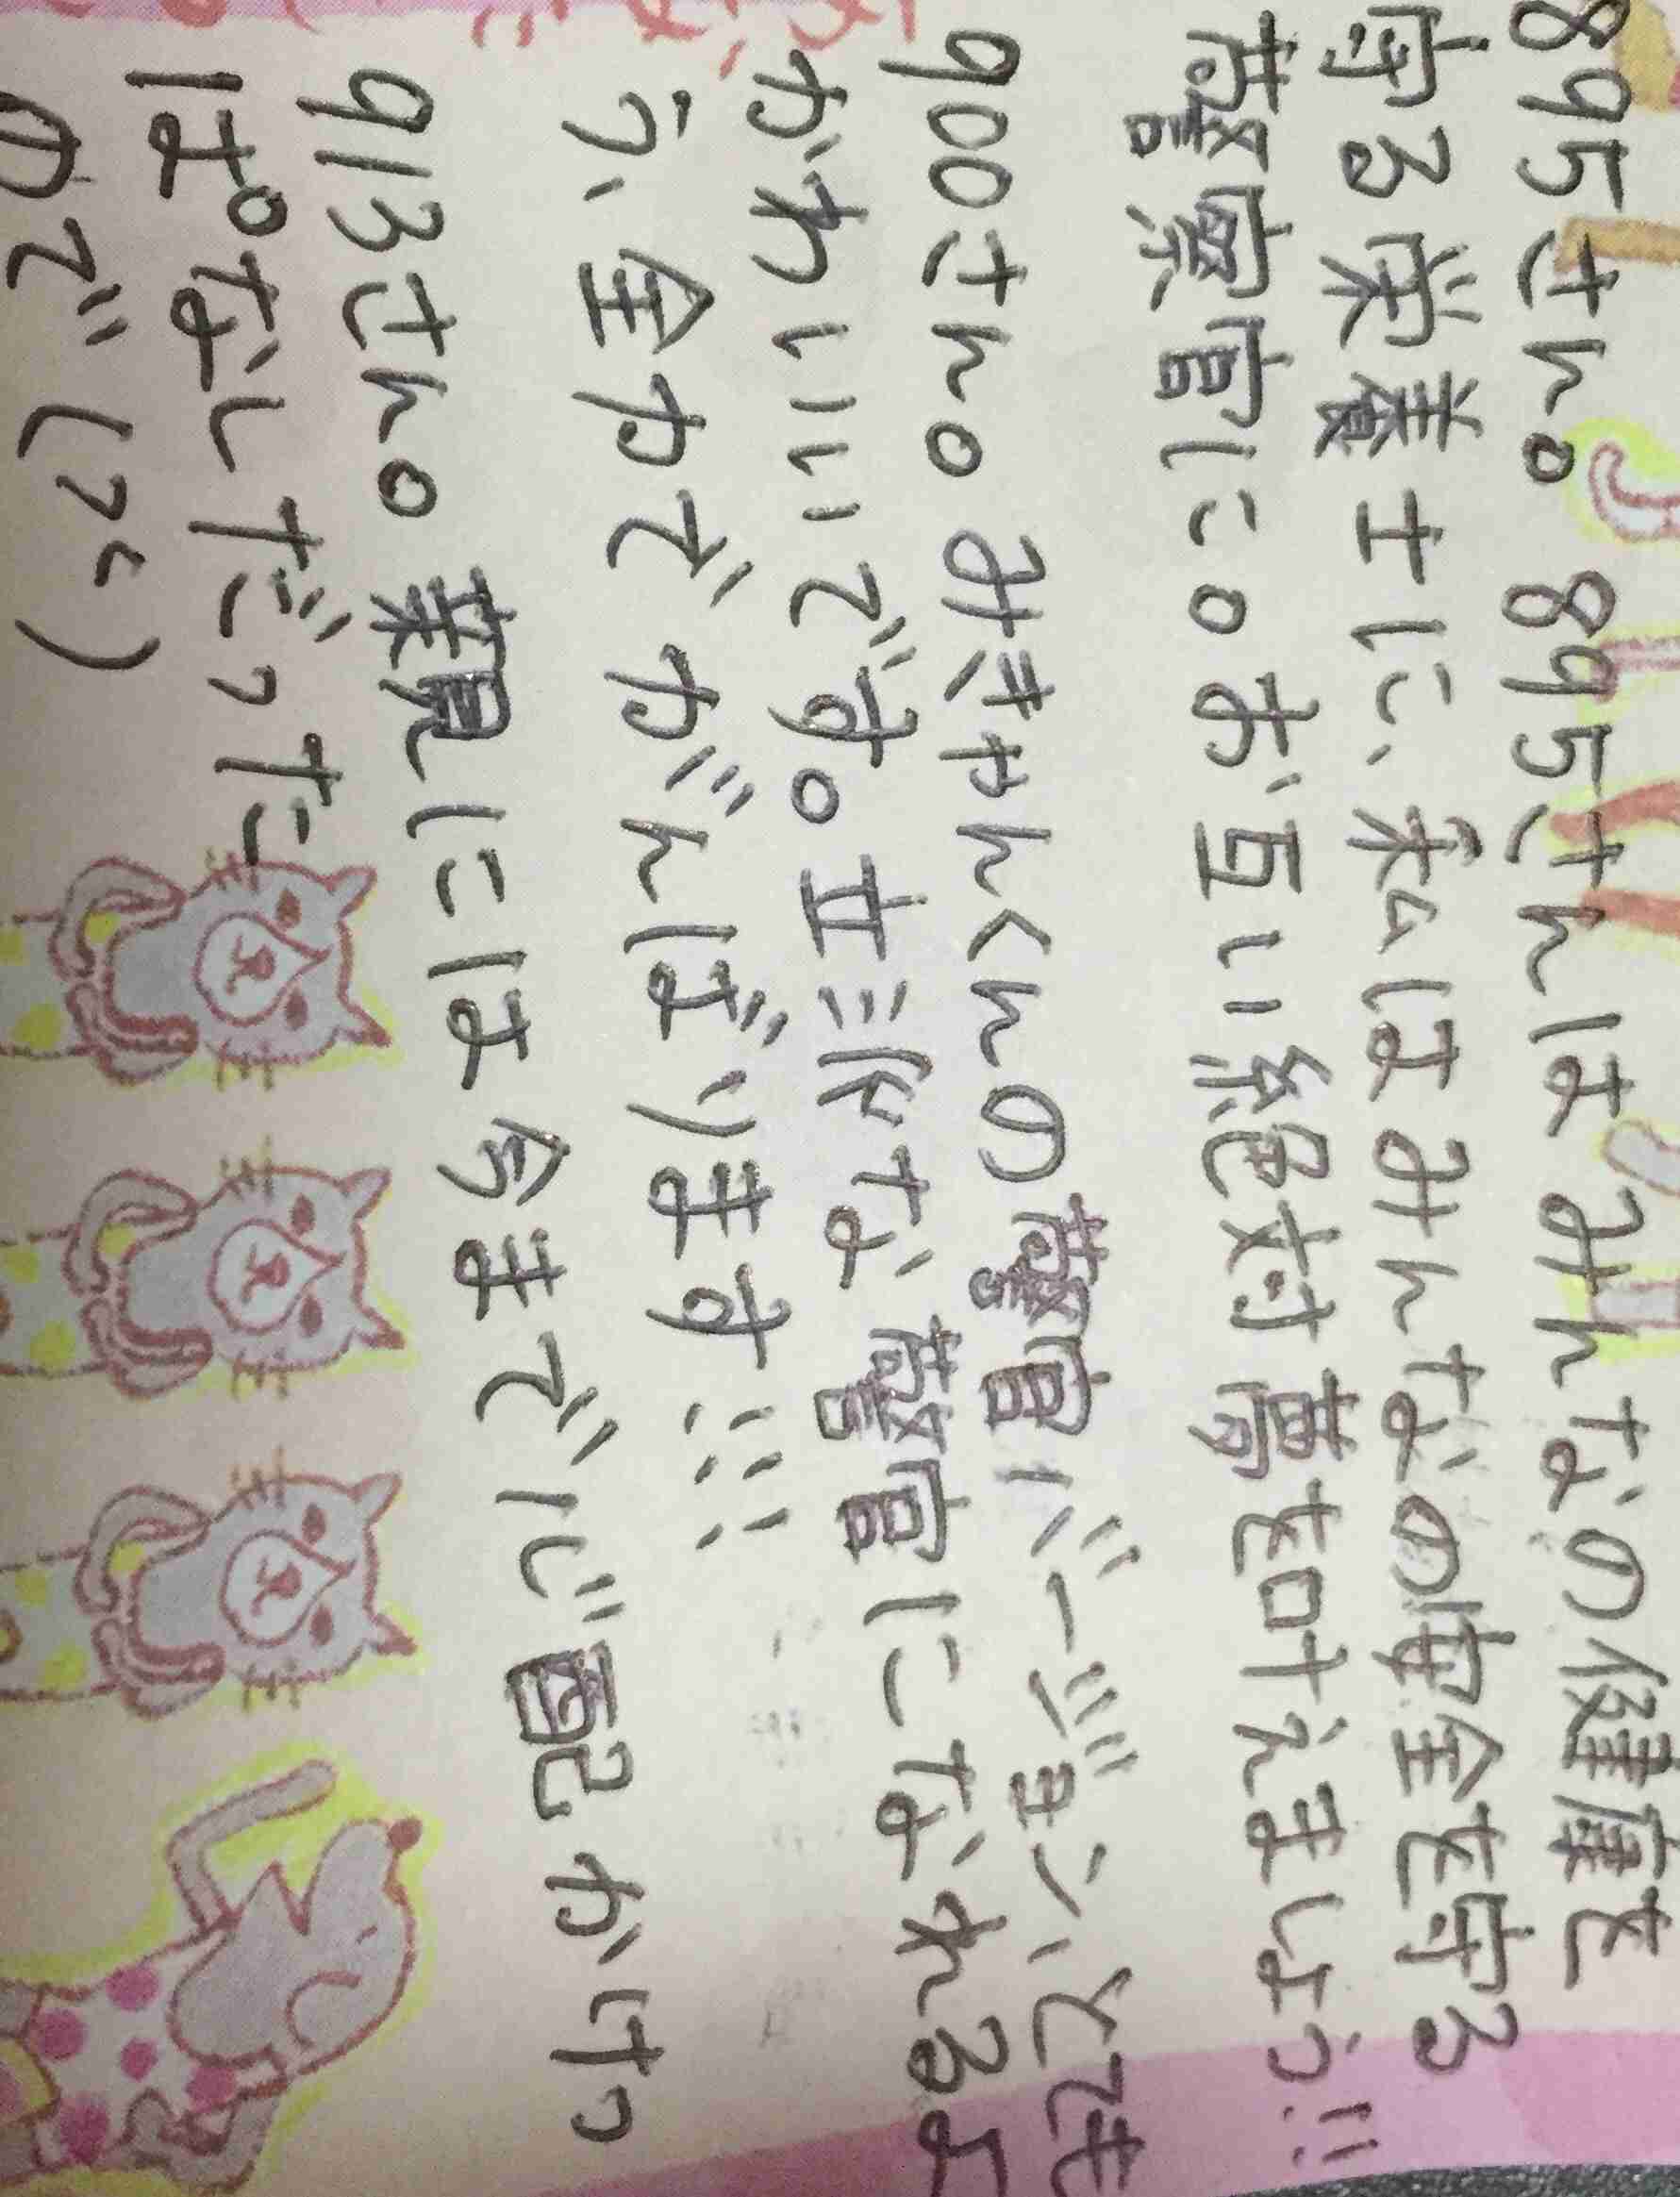 895さん。895さんはみんなの健康を
守る栄養士に、私はみんなの安全を守る
警察官に。お互い絶対夢を叶えましょう!!
900さん。みきゃんくんの警官バージョン、とても
かわいいです。立派な警官になれるよ
う、全力でがんばります!!!
913さん。親には今まで心配かけっ
ぱなしだった
ので(べ)